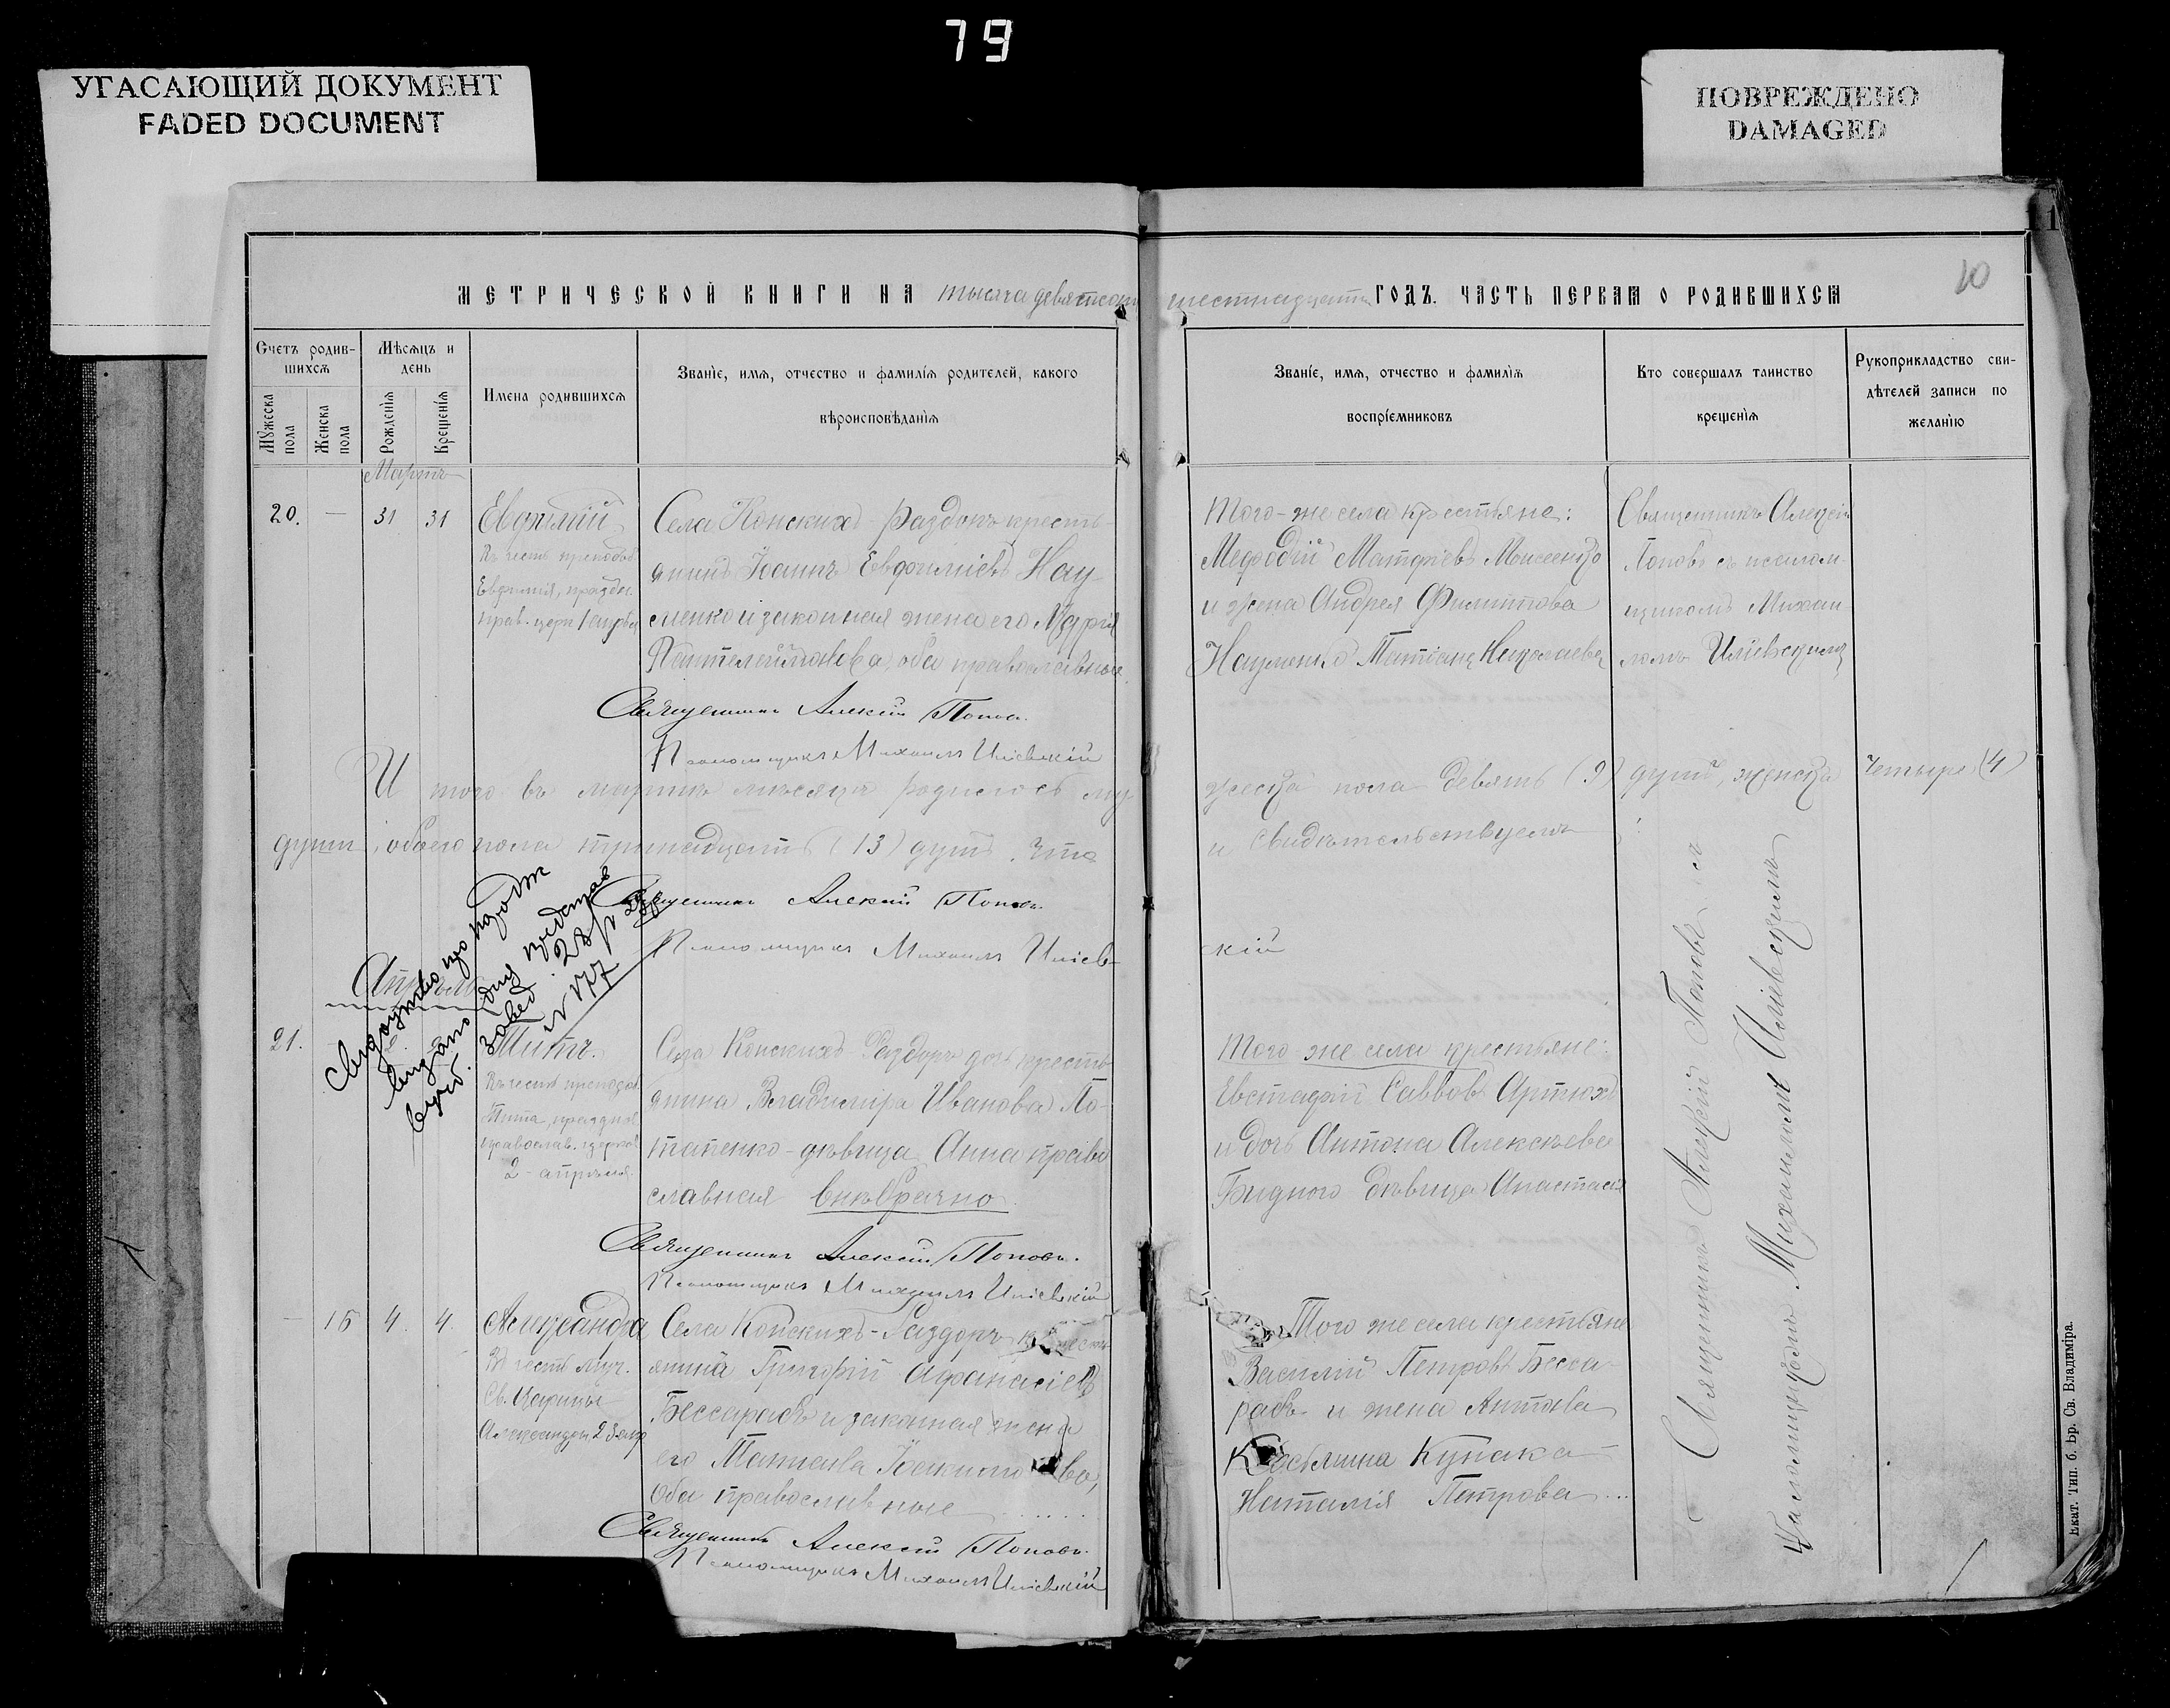 79
УГАСАЮЩИЙ ДОКУМЕНТ
FADED DOCUMENT
ПОВРЕЖДЕНО
DAMAGED
11
10
МЕТРИЧЕСКОЙ КНИГИ НА тысяча девятьсот шестнадцатый ГОДЪ. ЧАСТЬ ПЕРВАЯ О РОДИВШИХСЯ
Счетъ родив-
шихся
Мужеска пола
Женска пола
Мѣсяцъ и
день
Рожденія
Крещенія
Имена родившихся
Званіе, имя, отчество и фамилія родителей, какого
вѣроисповѣданія
Званіе, имя, отчество и фамилія
воспріемниковъ
Кто совершалъ таинство
крещенія
Рукоприкладство сви-
дѣтелей записи по
желанію
Мартъ
20. — 31 31
Евфимій
Въ честь преподоб.
Евфимія, праздн.
прав. церк 1 апрѣля
Села Конскихъ-Раздоръ кресть-
янинъ Іоаннъ Евфиміевъ Нау-
менко и законная жена его Марія
Пантелеймонова, оба православные.
Священникъ Алексій Поповъ.
Псаломщикъ Михаилъ Иліевскій
Того-же села крестьяне:
Мефодій Матфіевъ Моисеенко
и жена Андрея Филиппова
Науменко Татіана Николаева
Священникъ Алексій
Поповъ съ псалом-
щикомъ Михаи-
ломъ Иліевскимъ
Итого въ мартѣ мѣсяцѣ родилось му-
жеска пола девять (9) душъ, женска четыре (4)
душъ, обоего пола тринадцать (13) душъ. Что
и свидѣтельствуемъ:
Священникъ Алексій Поповъ.
Псаломщикъ Михаилъ Иліев-
скій
Апрѣль
выдано для
завед. 28/
№ 177
21.
Титъ.
Въ честь преподоб.
Тита, празднов.
православ. церков
2-апрѣля.
Села Конскихъ-Раздоръ дочь кресть-
янина Владиміра Иванова По-
тапенко-дѣвица Анна право
славная внѣбрачно.
Священникъ Алексій Поповъ.
Псаломщикъ Михаилъ Иліевскій
Того же села крестьяне:
Евстафій Саввовъ Артюхъ
и дочь Антона Алексѣева
Бидного дѣвица Анастасія
Священникъ Алексій Поповъ съ
Псаломщикомъ Михаиломъ Иліевскимъ
— 15 4. 4.
Александра
Въ честь муч.
Св. Царицы
Александры 23 апр
Села Конскихъ-Раздоръ крест-
янинъ Григорій Афанасіевъ
Бессарабъ и законная жена
его Татіана Іоакимова,
оба православные
Священникъ Алексій Поповъ.
Псаломщикъ Михаилъ Иліевскій
Того же села крестьяне
Василій Петровъ Бесса-
рабъ и жена Антона
Кунака
Наталія Петрова...
Екат. Тип. б. Бр. Св. Владиміра.